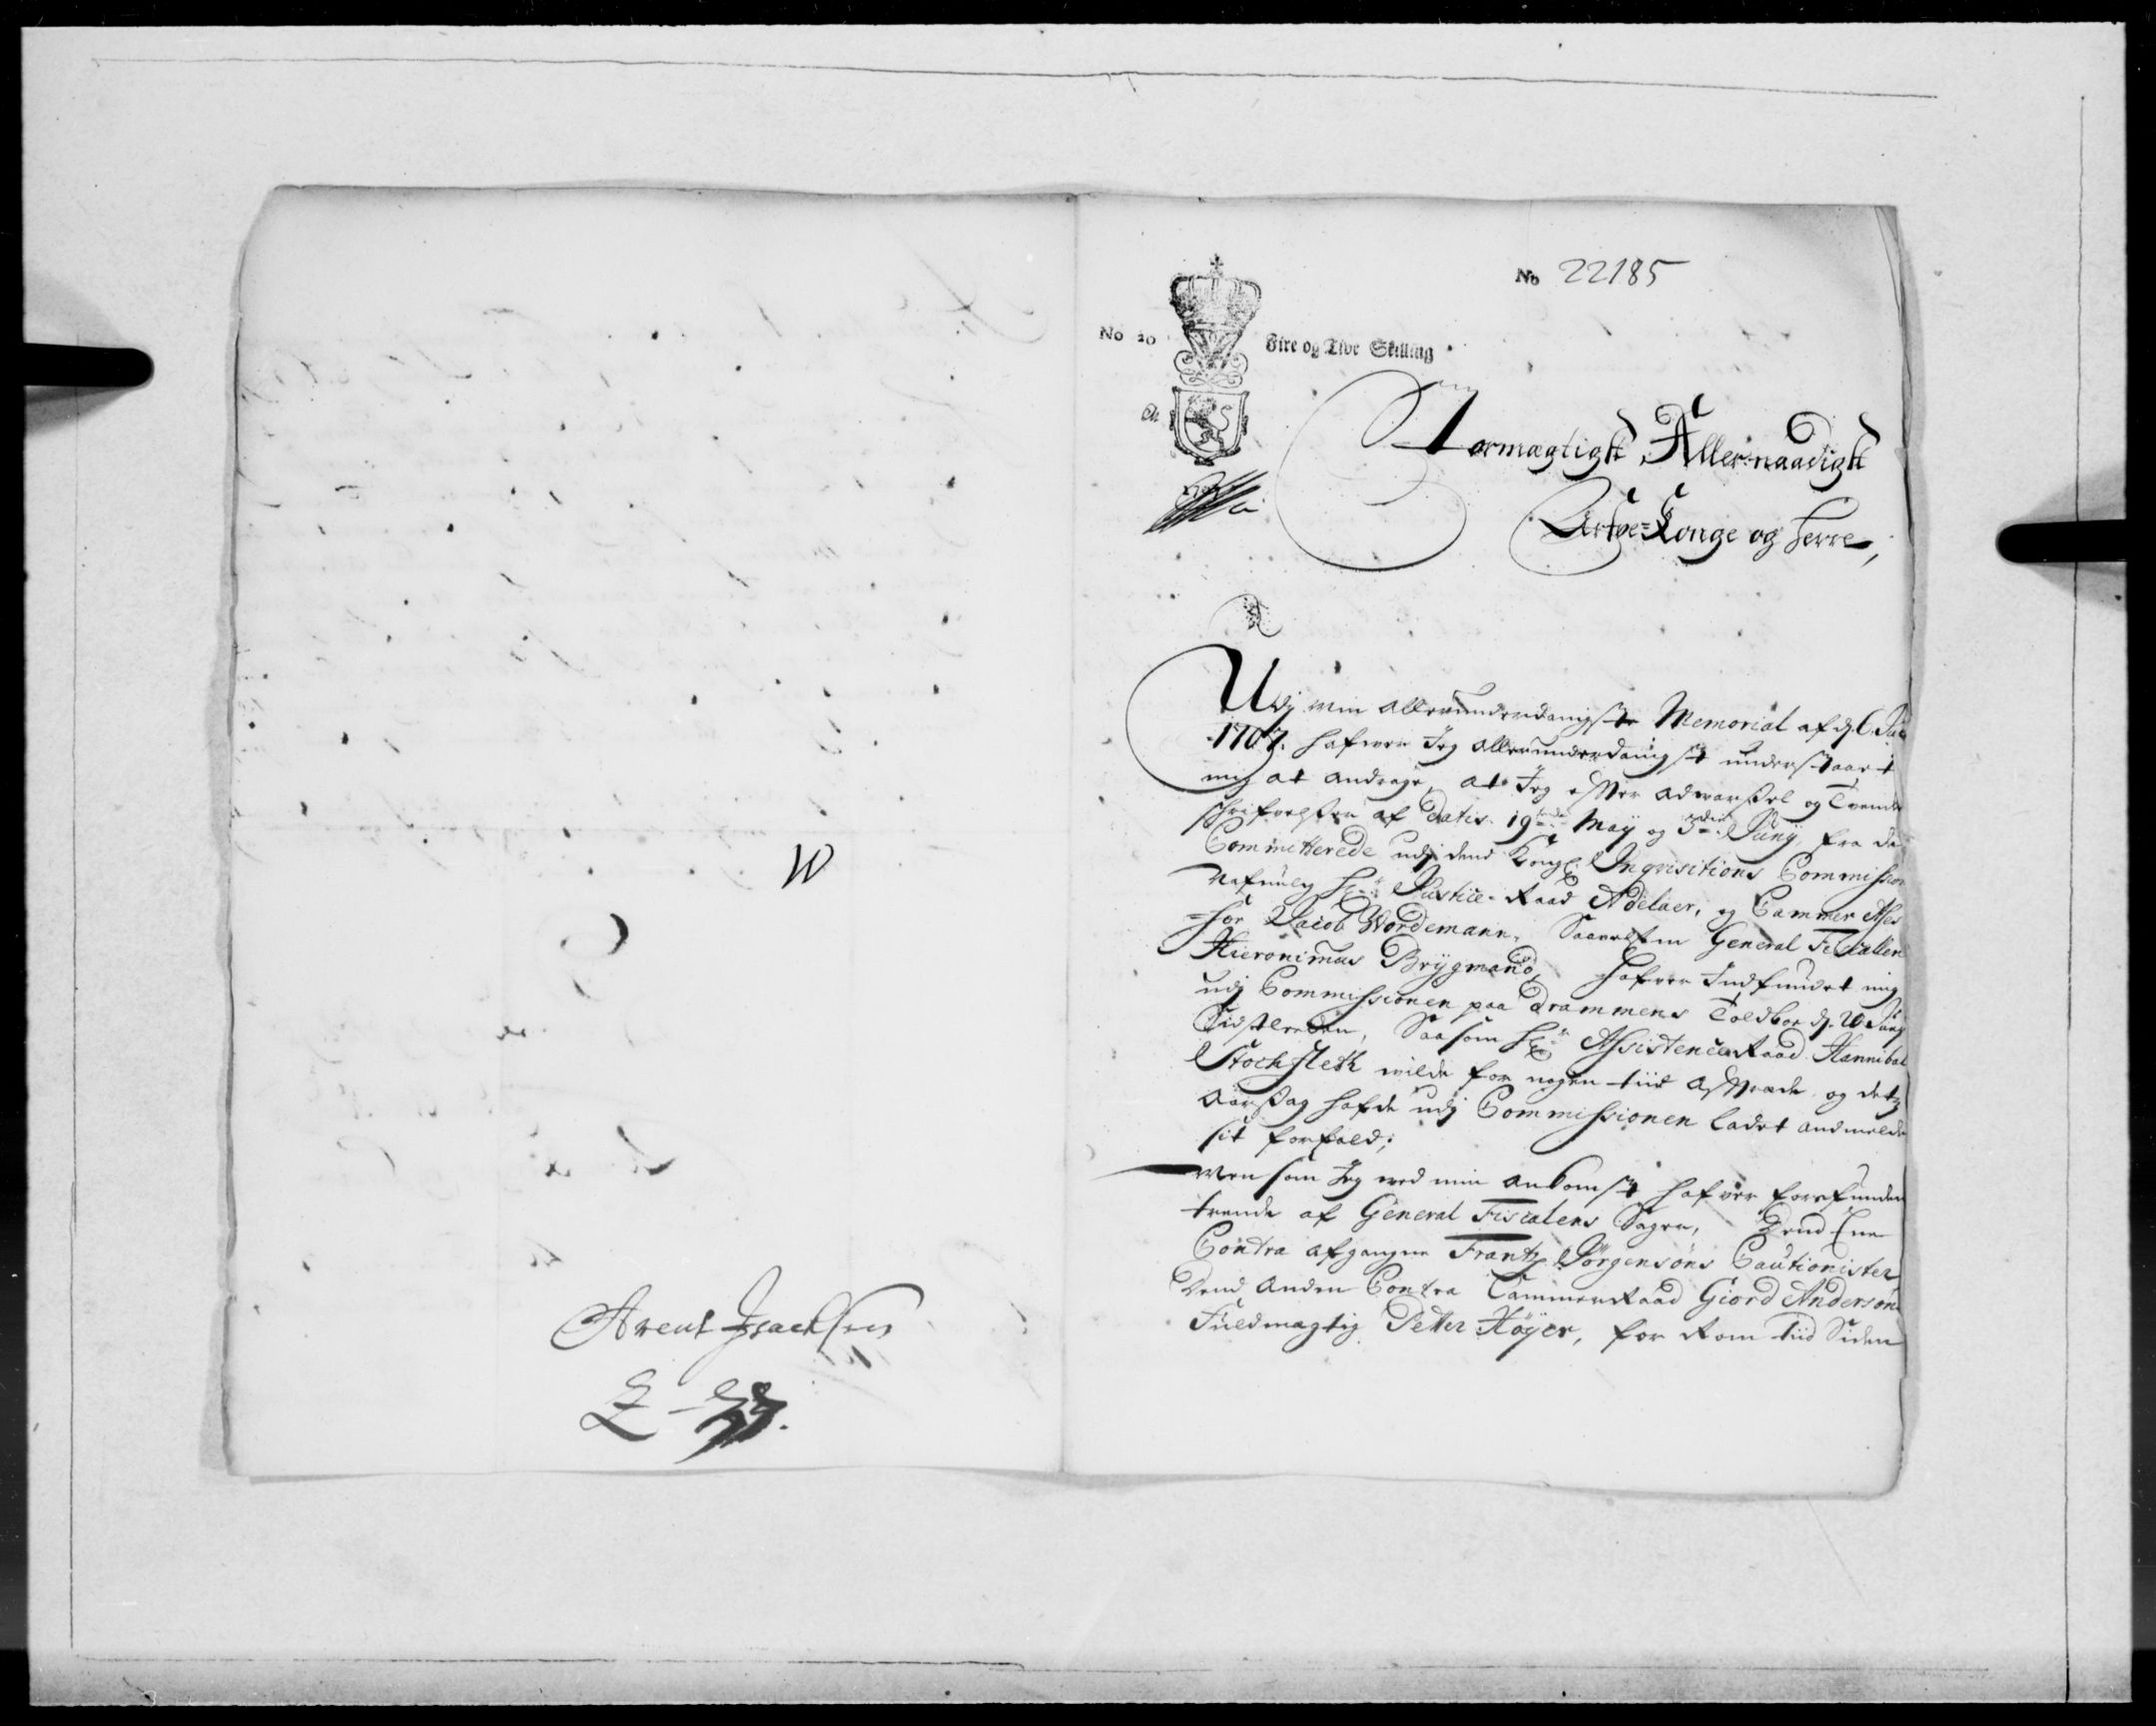 W
Arent Isachsen
No 22185
No 20
Fire og Tive Skilling
Stormægtigste Aller-naadigste
Arfve-Konge og Herre,
Udj min allerunderdanigste Memorial af d. 6. Juny
1707. hafver Jeg allerunderdanigst understaaet
mig at andrage, at Jeg efter advarssel og Tvende
schrifvelsser af Datis 19de May og 3die Juny, fra de
Committerede udj dend Kongl. Inqvisitions Commission
nafnlig Hr. Justice-Raad Adelaer, og Cammer Asses-
=sor Jacob Wordemann, Saavelsom General Fiscallen
Hieronimus Brÿgmand, hafver Indfundet mig
udj Commissionen paa Drammens Toldboe d. 20 Juny
Sidstleeden, Saasom Hr. Assistence Raad Hannibal
Stochfleth vilde for nogen tiid aftræde og detz
aarsag hafde udj Commissionen ladet andmelde
sit forfald;
Men som Jeg ved min ankomst hafver forefunden
tvende af General Fiscalens Sager, Dend Eene
Contra afgangne Frantz Jörgensöns Cautionister
Dend anden Contra Cammer Raad Giord Andersöns
Fuldmægtig Petter Höyer, for Rom tiid Siden